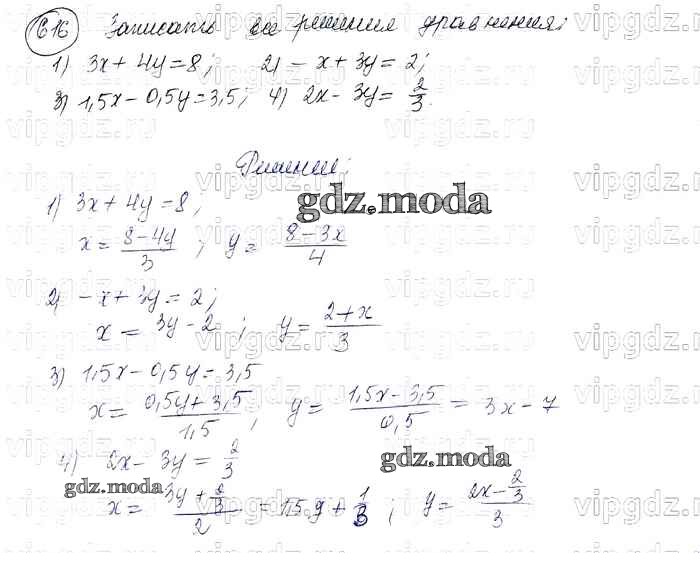 616 Записать все решения уравнения:
1) 3x + 4y = 8; 2) - x + 3y = 2;
3) 1,5x - 0,5y = 3,5; 4) 2x - 3y = 2/3.
Решение:
1) 3x + 4y = 8;
gdz.moda
x = (8-4y)/3 ; y = (8-3x)/4
2) -x + 3y = 2;
x = 3y - 2 ; y = (2+x)/3
3) 1,5x - 0,5y = 3,5
x = (0,5y + 3,5)/1,5 ; y = (1,5x - 3,5)/0,5 = 3x - 7
4) 2x - 3y = 2/3
gdz.moda
gdz.moda
x = (3y + 2/3)/2 = 1,5y + 1/3 ; y = (2x - 2/3)/3